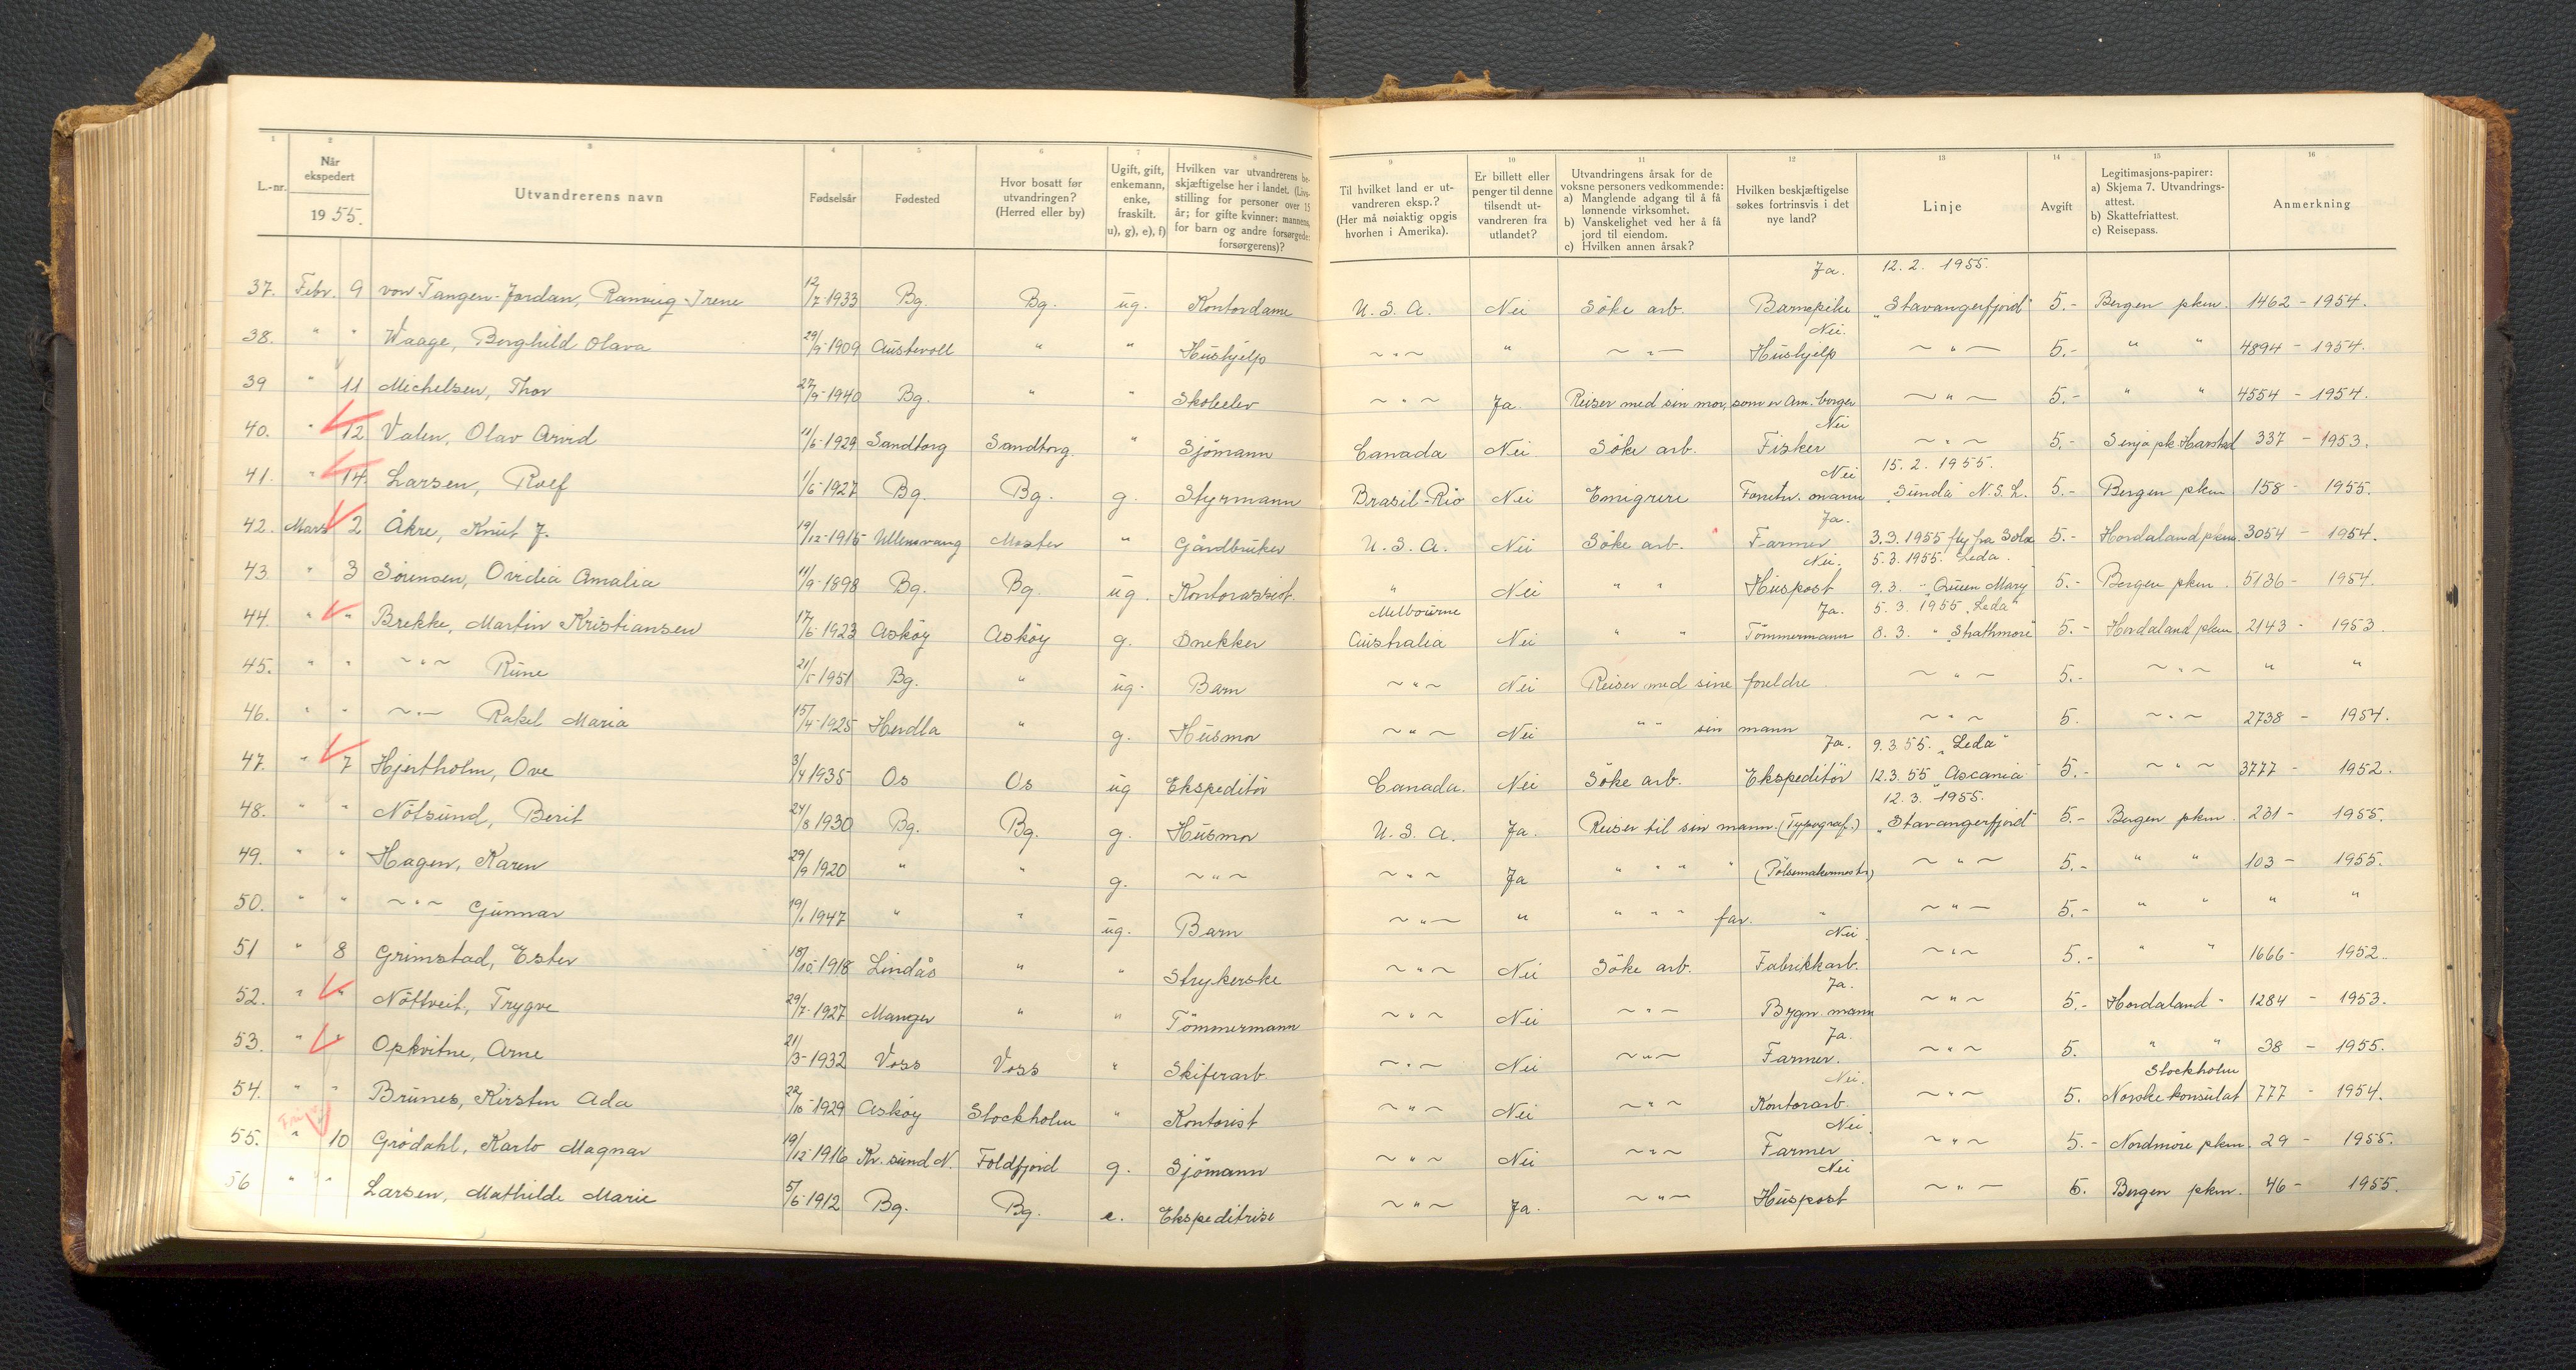 1 2 3 4 5 6 7 8 9 10 11 12 13 14 15 16
L.-nr. | Når ekspedert 1955. | Utvandrerens navn | Fødselsår | Fødested | Hvor bosatt før utvandringen? (Herred eller by) | Ugift, gift, enkemann, enke, fraskilt. u), g), e), f) | Hvilken var utvandrerens beskjæftigelse her i landet. (Livsstilling for personer over 15 år; for gifte kvinner: mannens, for barn og andre forsørgede: forsørgerens)? | Til hvilket land er utvandreren eksp.? (Her må nøiaktig opgis hvorhen i Amerika). | Er billett eller penger til denne tilsendt utvandreren fra utlandet? | Utvandringens årsak for de voksne personers vedkommende: a) Manglende adgang til å få lønnende virksomhet. b) Vanskelighet ved her å få jord til eiendom. c) Hvilken annen årsak? | Hvilken beskjæftigelse søkes fortrinsvis i det nye land? | Linje | Avgift | Legitimasjons-papirer: a) Skjema 7. Utvandringsattest. b) Skattefriattest. c) Reisepass. | Anmerkning
Ja. 12. 2. 1955.
37. Febr. 9 von Tangen-Jordan, Ranveig Irene 12/7-1933 Bg. Bg. ug. Kontordame U.S.A. Nei Söke arb. Barnepike "Stavangerfjord" 5.- Bergen pkm. 1462 - 1954.
Nei.
38. " " Waage, Borghild Olava 29/9-1909 Austevoll " " Hushjelp ~"~ " ~"~ Hushjelp ~"~ 5.- " " 4894 - 1954.
39 " 11 Michelsen, Thor 27/9-1940 Bg. " " Skoleelev ~"~ Ja. Reiser med sin mor, som er Am. borger ~"~ 5.- " " 4554 - 1954.
Nei
40. " 12 Valen, Olav Arvid 11/6-1929 Sandtorg Sandtorg. " Sjömann Canada Nei Söke arb. Fisker ~"~ 5.- Senja pk. Harstad 337 - 1953.
Nei 15. 2. 1955.
41. " 14. Larsen, Rolf 1/6-1927 Bg. Bg. g. Styrmann Brasil-Rio Nei Emigrere "Sunda" N.S.L. 5.- Bergen pkm 158 - 1955.
Ja.
42. Mars 2 Åkre, Knut J. 19/12-1915 Ullensvang Moster " Gårdbruker U.S.A. Nei Söke arb. Farmer 3.3.1955 fly fra Sola 5.- Hordaland pkm. 3054 - 1954.
Nei. 5.3.1955. Leda.
43 " 3 Sörensen, Ovidia Amalia 11/9-1898 Bg. Bg. ug. Kontorassist. " Nei " " Huspost 9.3. - "Queen Mary 5.- Bergen pkm. 5136 - 1954.
Melbourne Ja. 5. 3. 1955 "Leda"
44. " " Brekke, Martin Kristiansen 17/6-1923 Asköy Asköy g. Snekker Australia Nei " " Tömmermann 8.3. " "Strathmore" 5.- Hordaland pkm. 2143 - 1953.
45. " " ~"~ Rune 21/5 1951 Bg. " ug. Barn ~"~ Nei Reiser med sine foreldre ~"~ 5.- ~"~ " "
46. " " ~"~ Rakel Maria 15/4-1925 Herdla " g. Husmor ~"~ Nei " " sin mann ~"~ 5. ~"~ 2738 - 1954.
Ja. 9.3.55. "Leda"
47. " 7 Hjertholm, Ove 3/4 1935 Os Os ug Ekspeditör Canada. Nei Söke arb. Ekspeditör 12.3.55 "Ascania" 5.- ~"~ 3777 - 1952.
12.3. 1955.
48. " " Nötsund, Berit 24/8 1930 Bg. Bg. g. Husmor U.S.A. Ja. Reiser til sin mann. (Typograf.) "Stavangerfjord" 5.- Bergen pkm. 231 - 1955.
49. " " Hagen, Karen 29/9 1920 " " g. ~"~ ~"~ Ja " " " " (Pölsemakermester) ~"~ 5.- " " 103 - 1955.
50. " " ~"~ Gunnar 19/1 1947 " " ug. Barn ~"~ " " " " far. " ~"~ 5.- " " " "
Nei.
51 " 8 Grimstad, Ester 18/10-1918 Lindås " " Strykerske ~"~ Nei Söke arb. Fabrikkarb. ~"~ 5.- " " 1666 - 1952.
Ja.
52. " " Nöttveit, Trygve 29/7-1927 Manger " " Tömmermann ~"~ Nei ~"~ Bygn. mann ~"~ 5.- Hordaland " 1284 - 1953.
Ja.
53. " " Opkvitne, Arne 21/3-1932 Voss Voss " Skiferarb. ~"~ Nei ~"~ Farmer. ~"~ 5. " " 38 - 1955.
Nei. Stockholm
54. " " Brunes, Kirsten Ada 22/10-1929 Asköy Stockholm " Kontorist ~"~ Nei ~"~ Kontorarb. ~"~ 5. Norske konsulat 777 - 1954.
Nei.
55. " 10 Grödahl, Karlo Magnar 19/12-1916 Kr. sund N. Foldfjord g. Sjömann ~"~ Nei ~"~ Farmer ~"~ 5.- Nordmöre pkm. 29 - 1955.
Nei
56 " " Larsen, Mathilde Marie 5/6-1912 Bg. Bg. e. Ekspeditrise ~"~ Ja. ~"~ Huspost ~"~ 5. Bergen pkm. 46 - 1955.